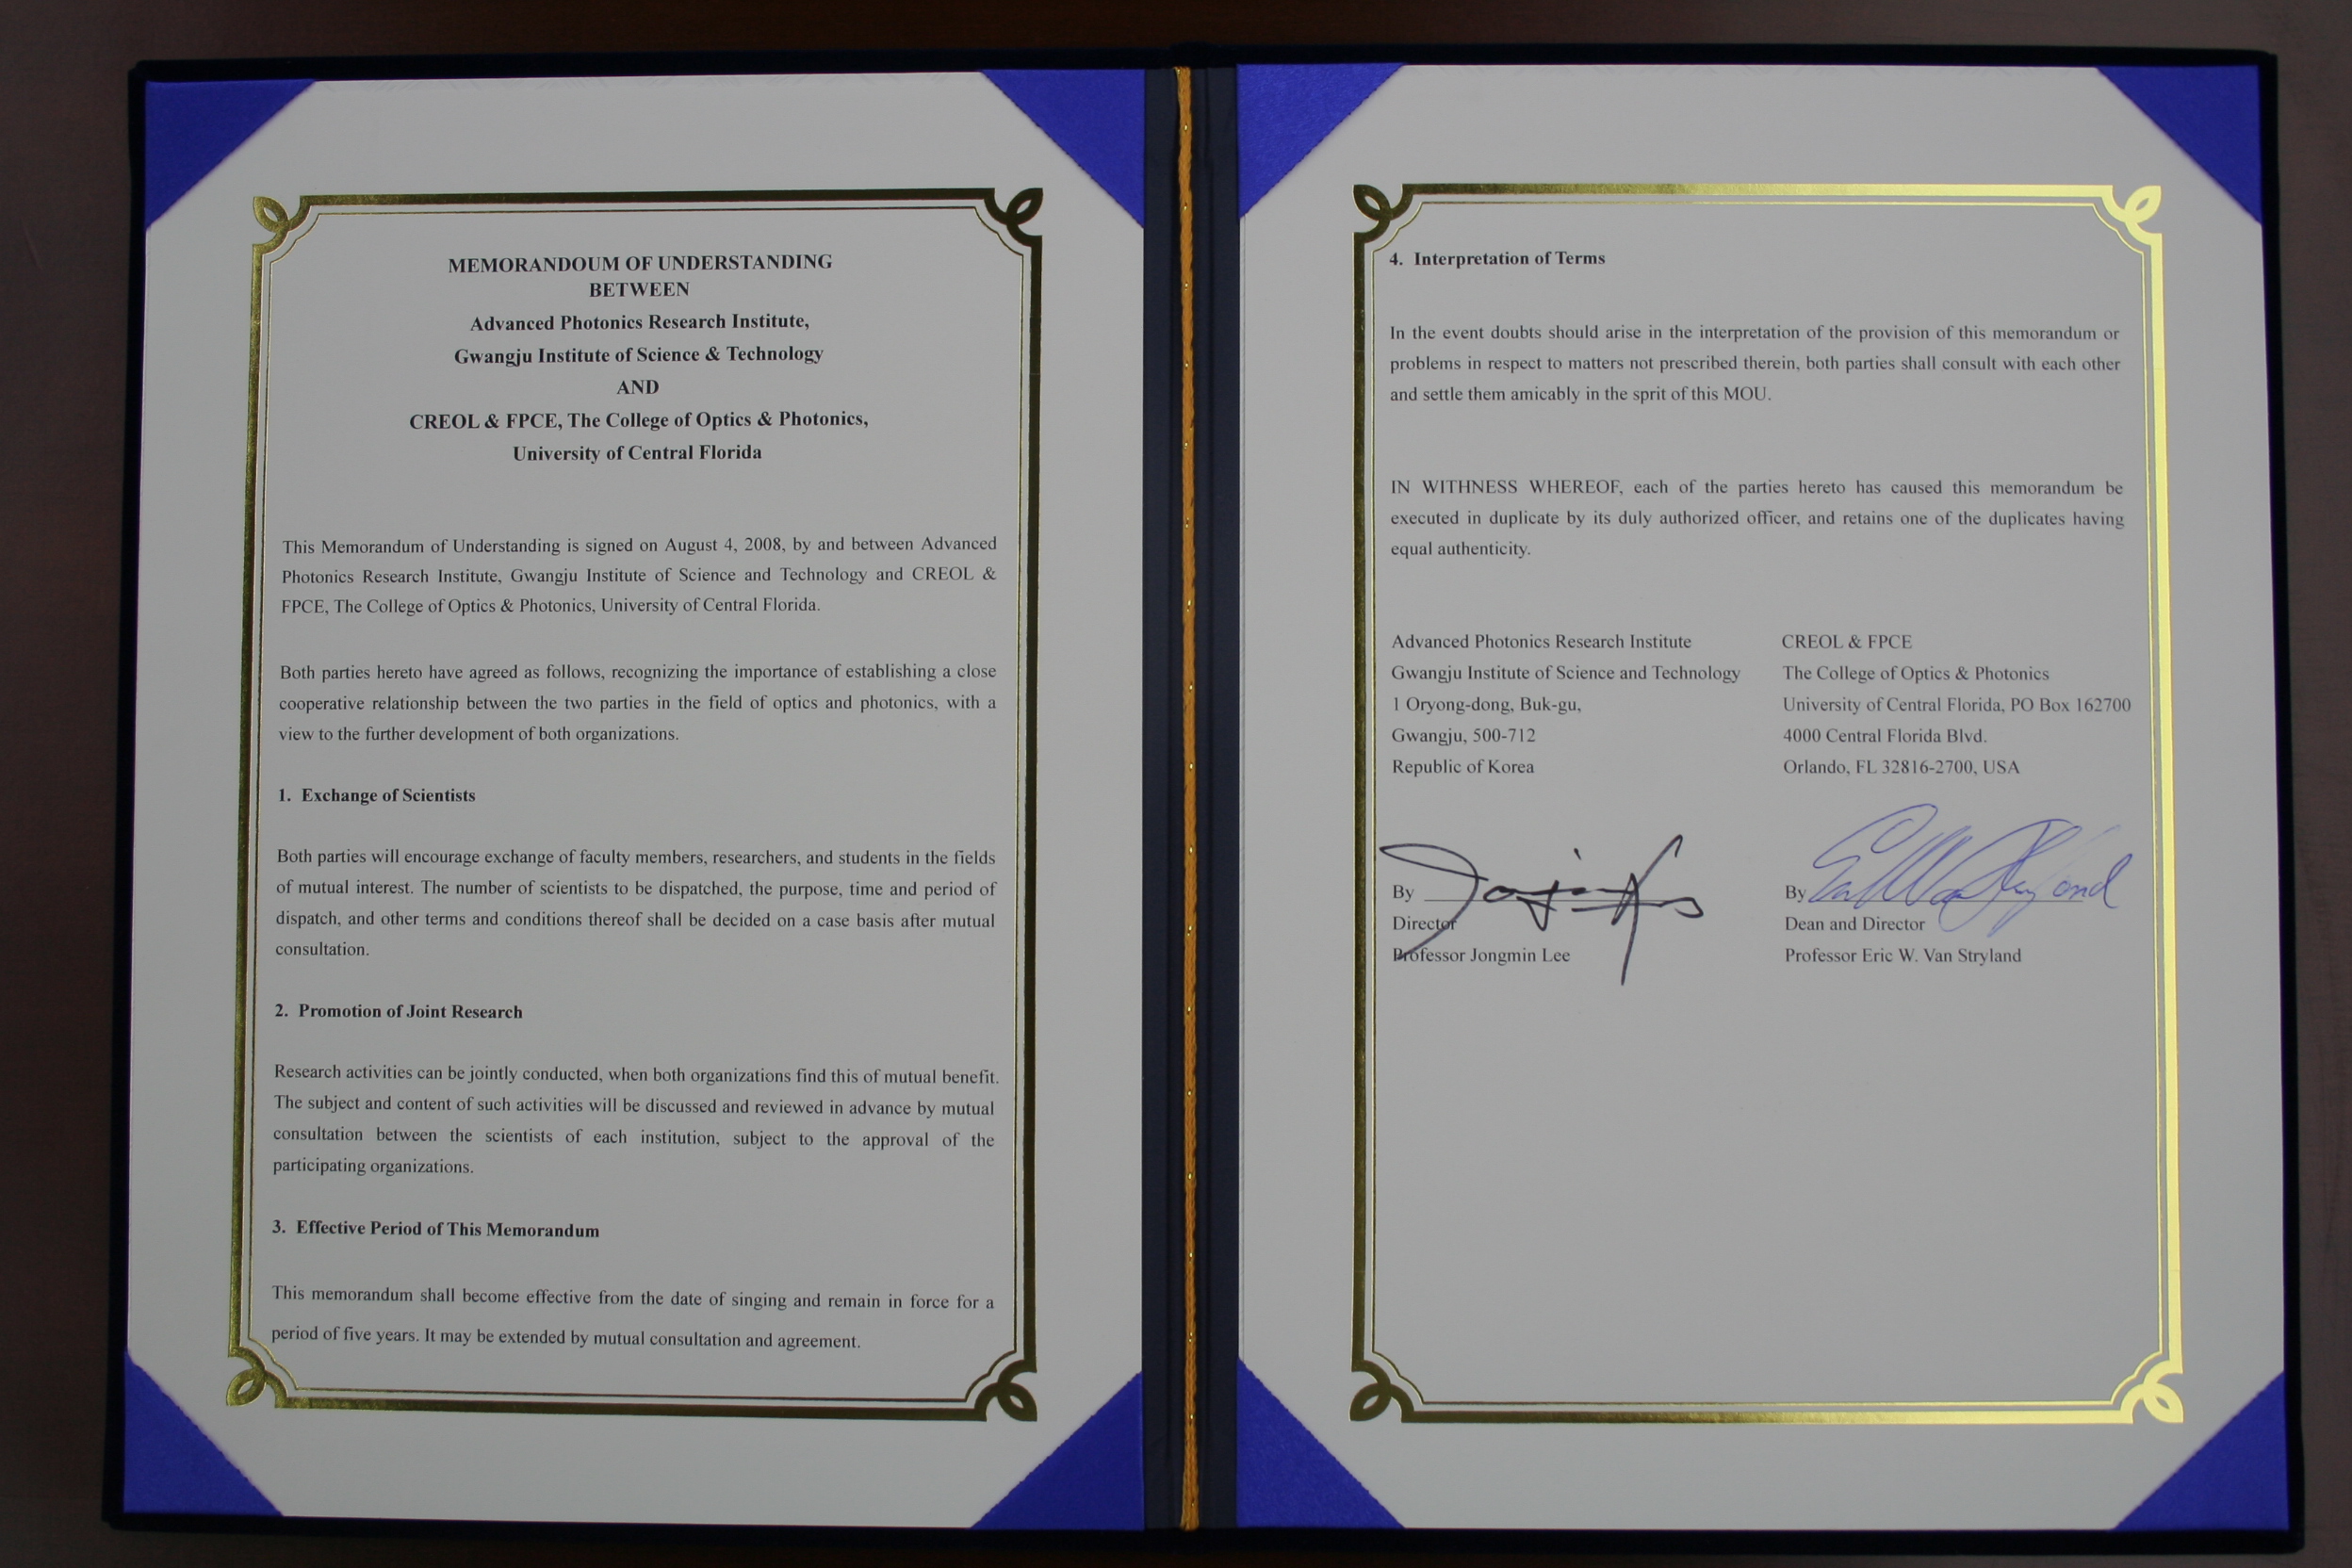 MEMORANDOUM OF UNDERSTANDING
BETWEEN
Advanced Photonics Research Institute,
Gwangju Institute of Science & Technology
AND
CREOL & FPCE, The College of Optics & Photonics,
University of Central Florida
This Memorandum of Understanding is signed on August 4, 2008, by and between Advanced
Photonics Research Institute, Gwangju Institute of Science and Technology and CREOL &
FPCE, The College of Optics & Photonics, University of Central Florida.
Both parties hereto have agreed as follows, recognizing the importance of establishing a close
cooperative relationship between the two parties in the field of optics and photonics, with a
view to the further development of both organizations.
1. Exchange of Scientists
Both parties will encourage exchange of faculty members, researchers, and students in the fields
of mutual interest. The number of scientists to be dispatched, the purpose, time and period of
dispatch, and other terms and conditions thereof shall be decided on a case basis after mutual
consultation.
2. Promotion of Joint Research
Research activities can be jointly conducted, when both organizations find this of mutual benefit.
The subject and content of such activities will be discussed and reviewed in advance by mutual
consultation between the scientists of each institution, subject to the approval of the
participating organizations.
3. Effective Period of This Memorandum
This memorandum shall become effective from the date of singing and remain in force for a
period of five years. It may be extended by mutual consultation and agreement.
4. Interpretation of Terms
In the event doubts should arise in the interpretation of the provision of this memorandum or
problems in respect to matters not prescribed therein, both parties shall consult with each other
and settle them amicably in the sprit of this MOU.
IN WITHNESS WHEREOF, each of the parties hereto has caused this memorandum be
executed in duplicate by its duly authorized officer, and retains one of the duplicates having
equal authenticity.
Advanced Photonics Research Institute
Gwangju Institute of Science and Technology
1 Oryong-dong, Buk-gu,
Gwangju, 500-712
Republic of Korea
By
Director
Professor Jongmin Lee
CREOL & FPCE
The College of Optics & Photonics
University of Central Florida, PO Box 162700
4000 Central Florida Blvd.
Orlando, FL 32816-2700, USA
By
Dean and Director
Professor Eric W. Van Stryland